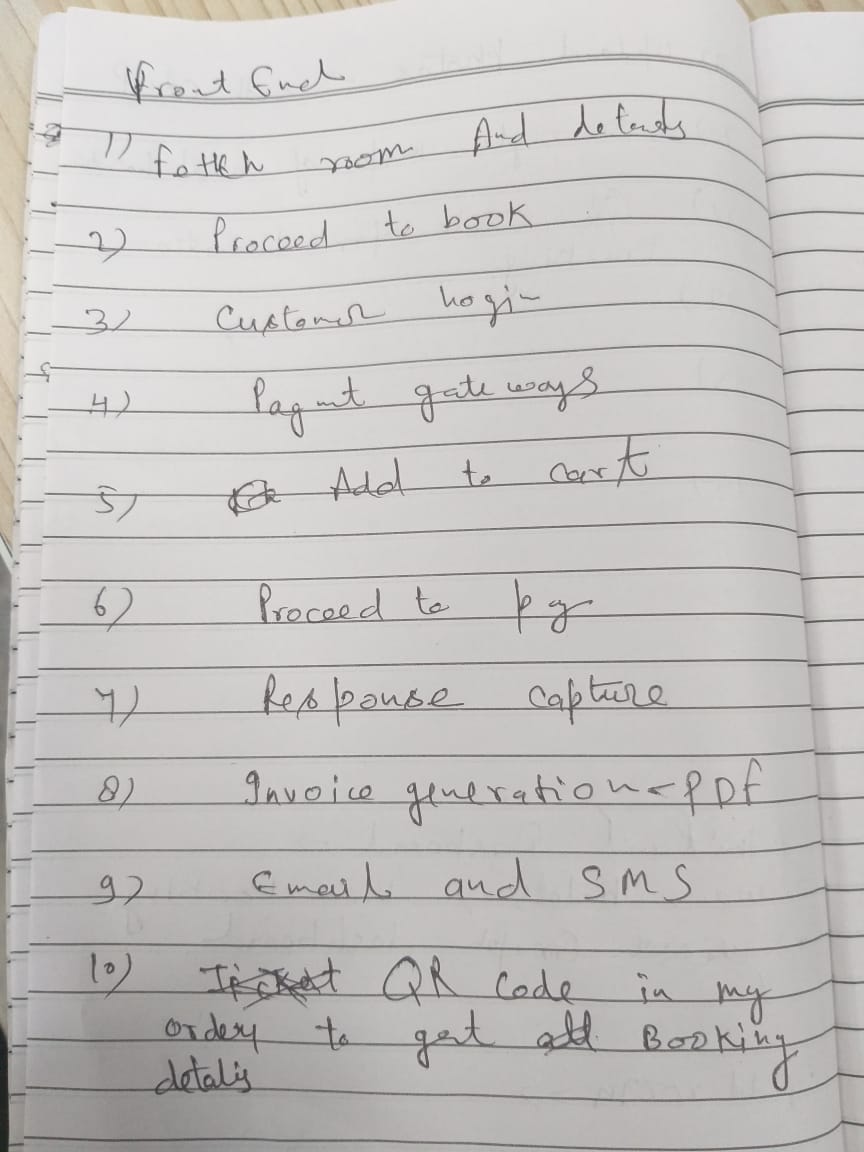 Front End
1) fetch room And details
2) Proceed to book
3) Customer login
4) Paymnt gate ways
5) Add to cart
6) Proceed to pg
7) Response capture
8) Invoice generation - PDF
9) Email and SMS
10) Ticket QR Code in my
orders to get all Booking
detalis